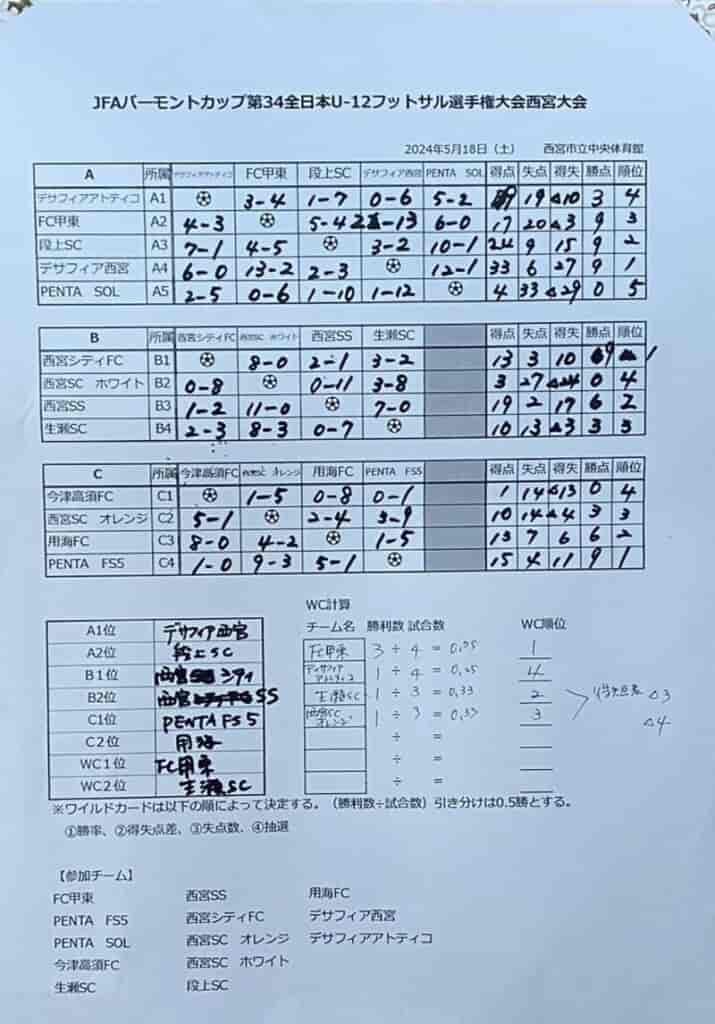 JFAバーモントカップ第34全日本U-12フットサル選手権大会西宮大会
2024年5月18日（土） 西宮市立中央体育館
A 所属 デサフィアアトティコ FC甲東 段上SC デサフィア西宮 PENTA SOL 得点 失点 得失 勝点 順位
デサフィアアトティコ A1 3-4 1-7 0-6 5-2 19 △10 3 4
FC甲東 A2 4-3 5-4 2-13 6-0 17 20 △3 9 3
段上SC A3 7-1 4-5 3-2 10-1 24 9 15 9 2
デサフィア西宮 A4 6-0 13-2 2-3 12-1 33 6 27 9 1
PENTA SOL A5 2-5 0-6 1-10 1-12 4 33 △29 0 5
B 所属 西宮シティFC 西宮SC ホワイト 西宮SS 生瀬SC 得点 失点 得失 勝点 順位
西宮シティFC B1 8-0 2-1 3-2 13 3 10 9 1
西宮SC ホワイト B2 0-8 0-11 3-8 3 27 △24 0 4
西宮SS B3 1-2 11-0 7-0 19 2 17 6 2
生瀬SC B4 2-3 8-3 0-7 10 13 △3 3 3
C 所属 今津高須FC 西宮SC オレンジ 用海FC PENTA FS5 得点 失点 得失 勝点 順位
今津高須FC C1 1-5 0-8 0-1 1 14 △13 0 4
西宮SC オレンジ C2 5-1 2-4 3-9 10 14 △4 3 3
用海FC C3 8-0 4-2 1-5 13 7 6 6 2
PENTA FS5 C4 1-0 9-3 5-1 15 4 11 9 1
A1位 デサフィア西宮
A2位 段上SC
B1位 西宮シティ
B2位 西宮SS
C1位 PENTA FS5
C2位 用海
WC1位 FC甲東
WC2位 生瀬SC
WC計算
チーム名 勝利数 試合数 WC順位
FC甲東 3 ÷ 4 = 0.75 1
デサフィアアトティコ 1 ÷ 4 = 0.25 4
生瀬SC 1 ÷ 3 = 0.33 2
西宮SCオレンジ 1 ÷ 3 = 0.33 3
÷ =
÷ =
÷ =
得失点差 △3
△4
※ワイルドカードは以下の順によって決定する。（勝利数÷試合数）引き分けは0.5勝とする。
①勝率、②得失点差、③失点数、④抽選
【参加チーム】
FC甲東 西宮SS 用海FC
PENTA FS5 西宮シティFC デサフィア西宮
PENTA SOL 西宮SC オレンジ デサフィアアトティコ
今津高須FC 西宮SC ホワイト
生瀬SC 段上SC